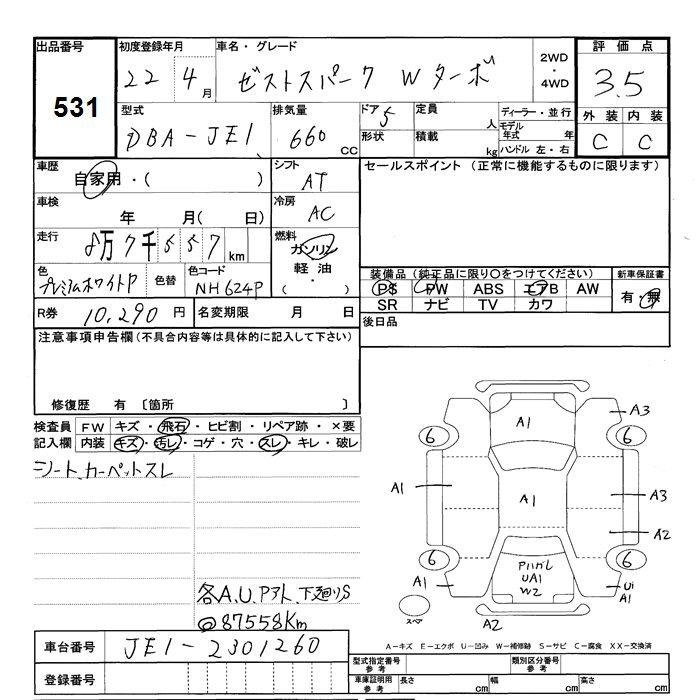 出品番号 初度登録年月 車名・グレード 2WD・4WD 評価点
531 22 4月 ゼストスパーク Wターボ 3.5
型式 排気量 ドア 定員 人 ディーラー・並行 外装 内装
DBA-JE1 660cc 5 形状 積載 kg モデル年式 年 ハンドル 左・右 C C
車歴 自家用・( ) シフト AT セールスポイント (正常に機能するものに限ります)
車検 年 月( 日) 冷房 AC
走行 8万7千557km 燃料 ガソリン 軽油 ( ・ )
色 プレミアムホワイトP 色替 色コード NH624P
装備品 (純正品に限り○をつけてください) 新車保証書
PS PW ABS エアB AW 有・無
SR ナビ TV カワ
R券 10,290円 名変期限 月 日 後日品
注意事項申告欄(不具合内容等は具体的に記入して下さい)
修復歴 有 〔箇所 〕
検査員 FW キズ・飛石・ヒビ割・リペア跡・×要
記入欄 内装 キズ・汚レ・コゲ・穴・スレ・キレ・破レ
シート、カーペットスレ
A1 A3
6 6
A1 A1 A3
A2
6 6
A1 Pハガレ UA1 W2 Ui A1
スペア A2
各A.U.Pアト、下廻りS
@87558Km
A-キズ E-エクボ U-凹み W-補修跡 S-サビ C-腐食 XX-交換済
車台番号 JE1-2301260
型式指定番号 参考 類別区分番号 参考
登録番号 車庫証明用 参考 長さ cm 幅 cm 高さ cm